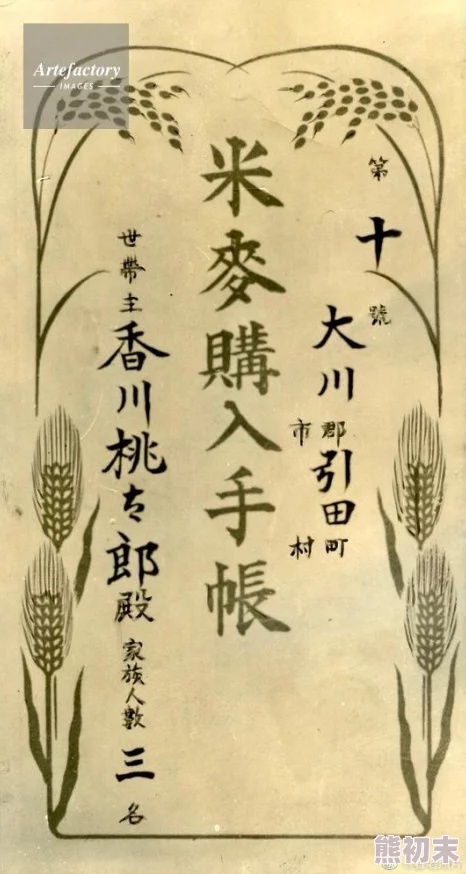 Artefactory
IMAGES
第十號
大川郡市引田町村
米麥購入手帳
世帶主香川桃太郎殿家族人數三名
熊初末